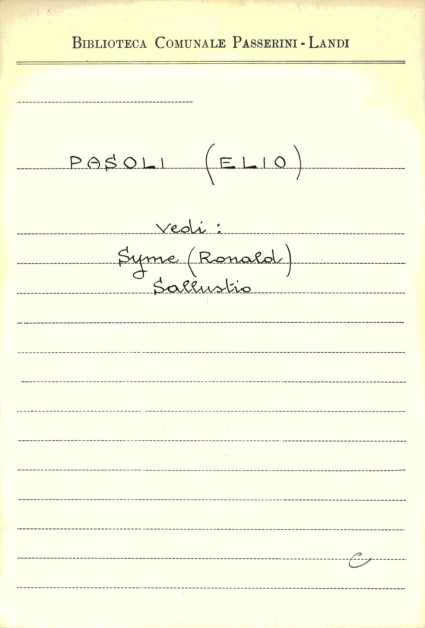 BIBLIOTECA COMUNALE PASSERINI - LANDI
PASOLI (ELIO)
Vedi :
Syme (Ronald)
Sallustio
C